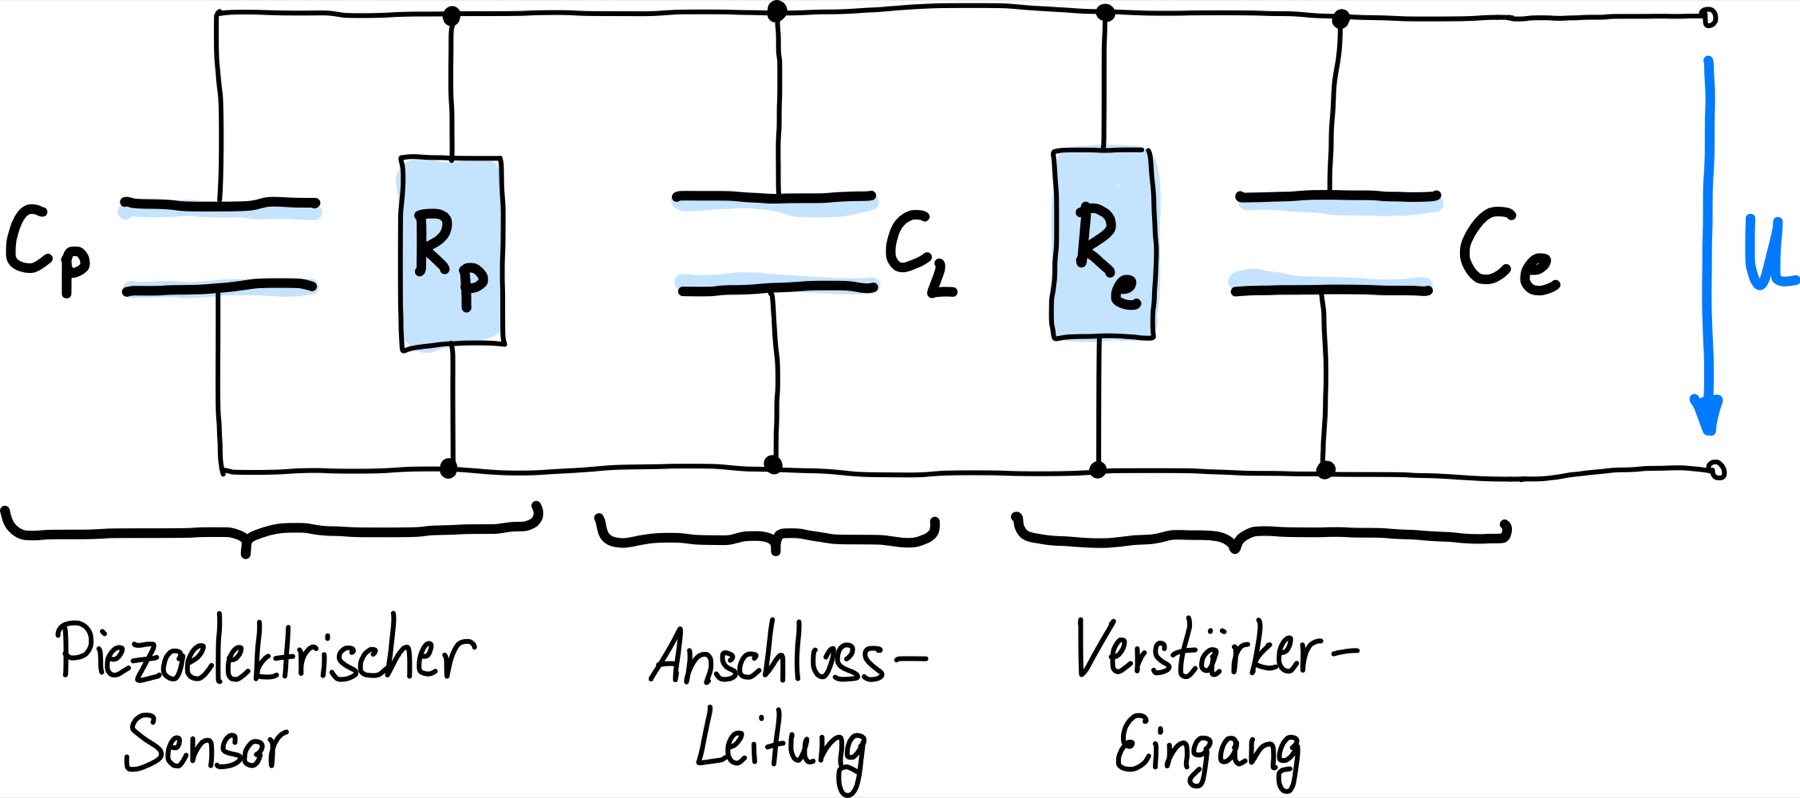 Cp
Rp
CL
Re
Ce
U
Piezoelektrischer
Sensor
Anschluss-
Leitung
Verstärker-
Eingang